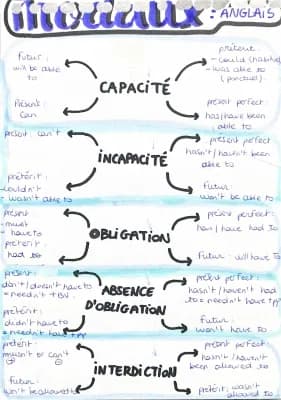 modaux : ANGLAIS
futur :
will be able
to
prétérit :
- could (habitude)
- was able to
(ponctuel)
CAPACITÉ
présent :
can
present perfect :
has/have been
able to
présent : can't
present perfect
hasn't/haven't been
able to
INCAPACITÉ
prétérit :
- couldn't
- wasn't able to
futur
won't be able to
présent
- must
- have to
present perfect :
has/have had to
OBLIGATION
prétérit :
had to
futur : will have to
présent :
don't/doesn't have to
= needn't + BV
present perfect :
hasn't/haven't had
to = needn't have + pp
ABSENCE
D'OBLIGATION
prétérit :
didn't have to
= needn't have + pp
futur :
won't have to
présent :
mustn't or can't
present perfect
hasn't/haven't
been allowed to
INTERDICTION
futur
won't be allowed to
prétérit : wasn't
allowed to